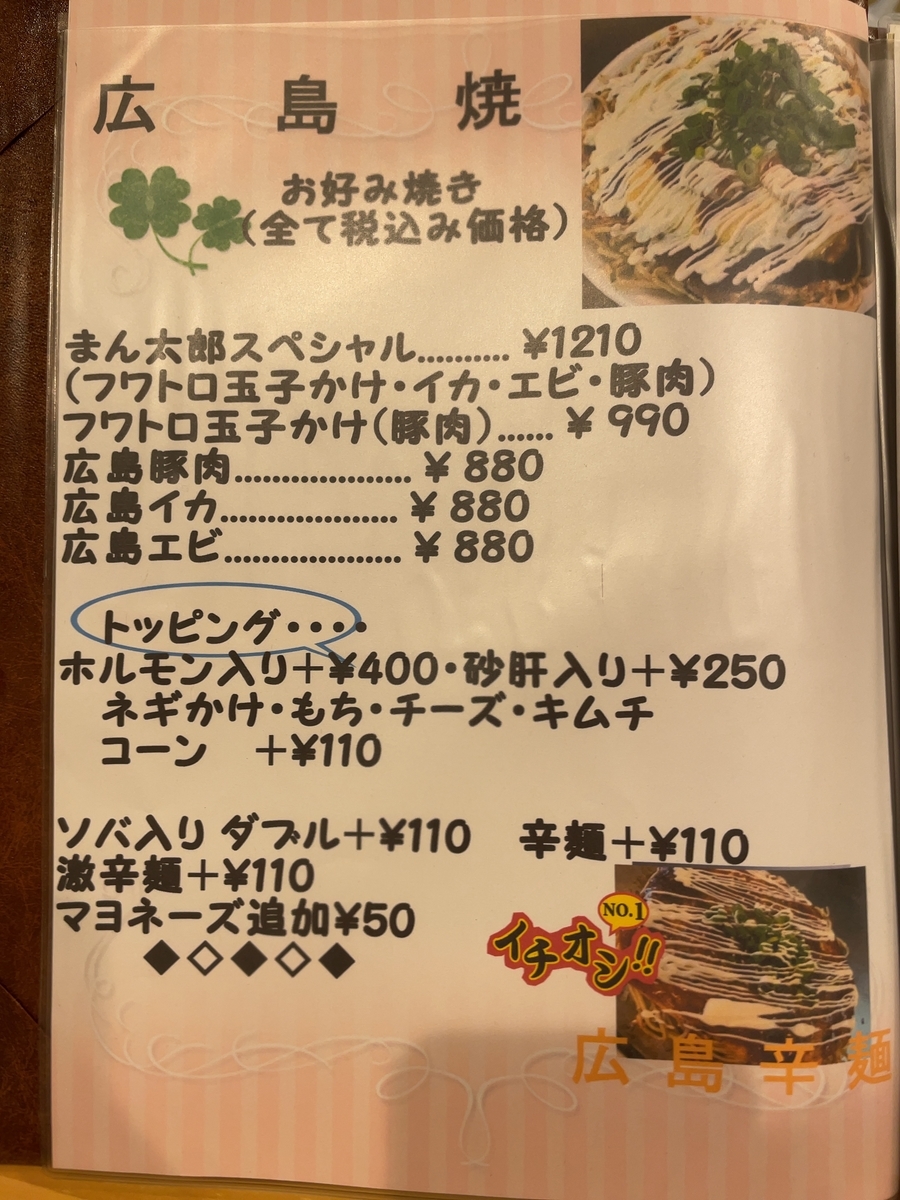 広島焼
お好み焼き
(全て税込み価格)
まん太郎スペシャル.......... ¥1210
(フワトロ玉子かけ・イカ・エビ・豚肉)
フワトロ玉子かけ(豚肉)...... ¥ 990
広島豚肉................... ¥ 880
広島イカ................... ¥ 880
広島エビ................... ¥ 880
トッピング・・・・
ホルモン入り+¥400・砂肝入り+¥250
ネギかけ・もち・チーズ・キムチ
コーン +¥110
ソバ入り ダブル+¥110 辛麺+¥110
激辛麺+¥110
マヨネーズ追加¥50
◆◇◆◇◆
NO.1
イチオシ!!
広島辛麺